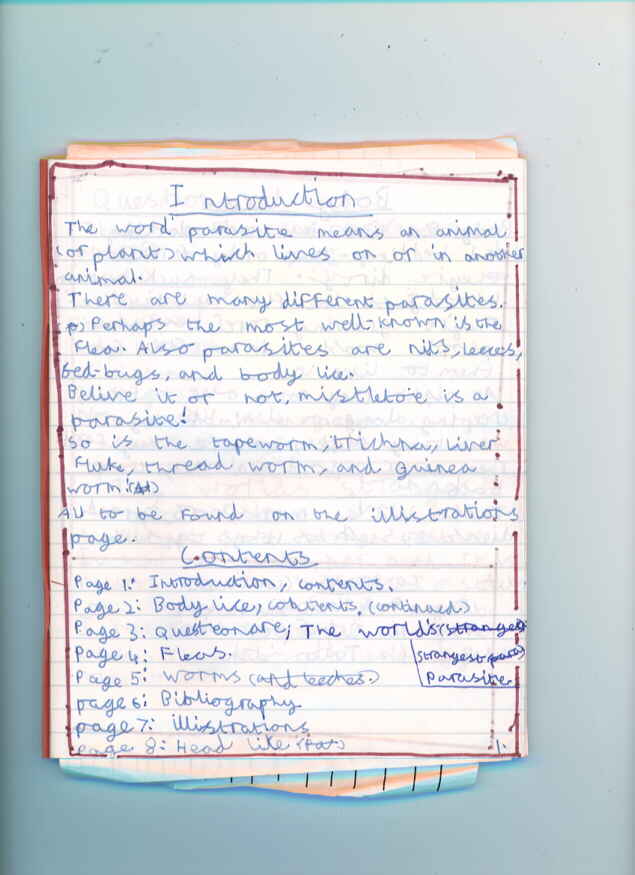 Introduction
The word parasite means an animal
(or plant) which lives on or in another
animal.
There are many different parasites.
p) Perhaps the most well-known is the
Flea. Also parasites are nits, leeces,
bed-bugs, and body lice.
Belive it or not, mistletoe is a
parasite!
So is the tapeworm, trichna, liver
Fluke, thread worm, and Guinea
worm.
All to be found on the illistrations
page.
Contents
Page 1: Introduction, contents.
Page 2: Body lice, contents. (continued)
Page 3: Questionare, The worlds (stranges
Page 4: Fleas. strangest
Page 5: worms (and leeches.) Parasite.
page 6: Bibliography
page 7: illistrations
page 8: Head lice
1.